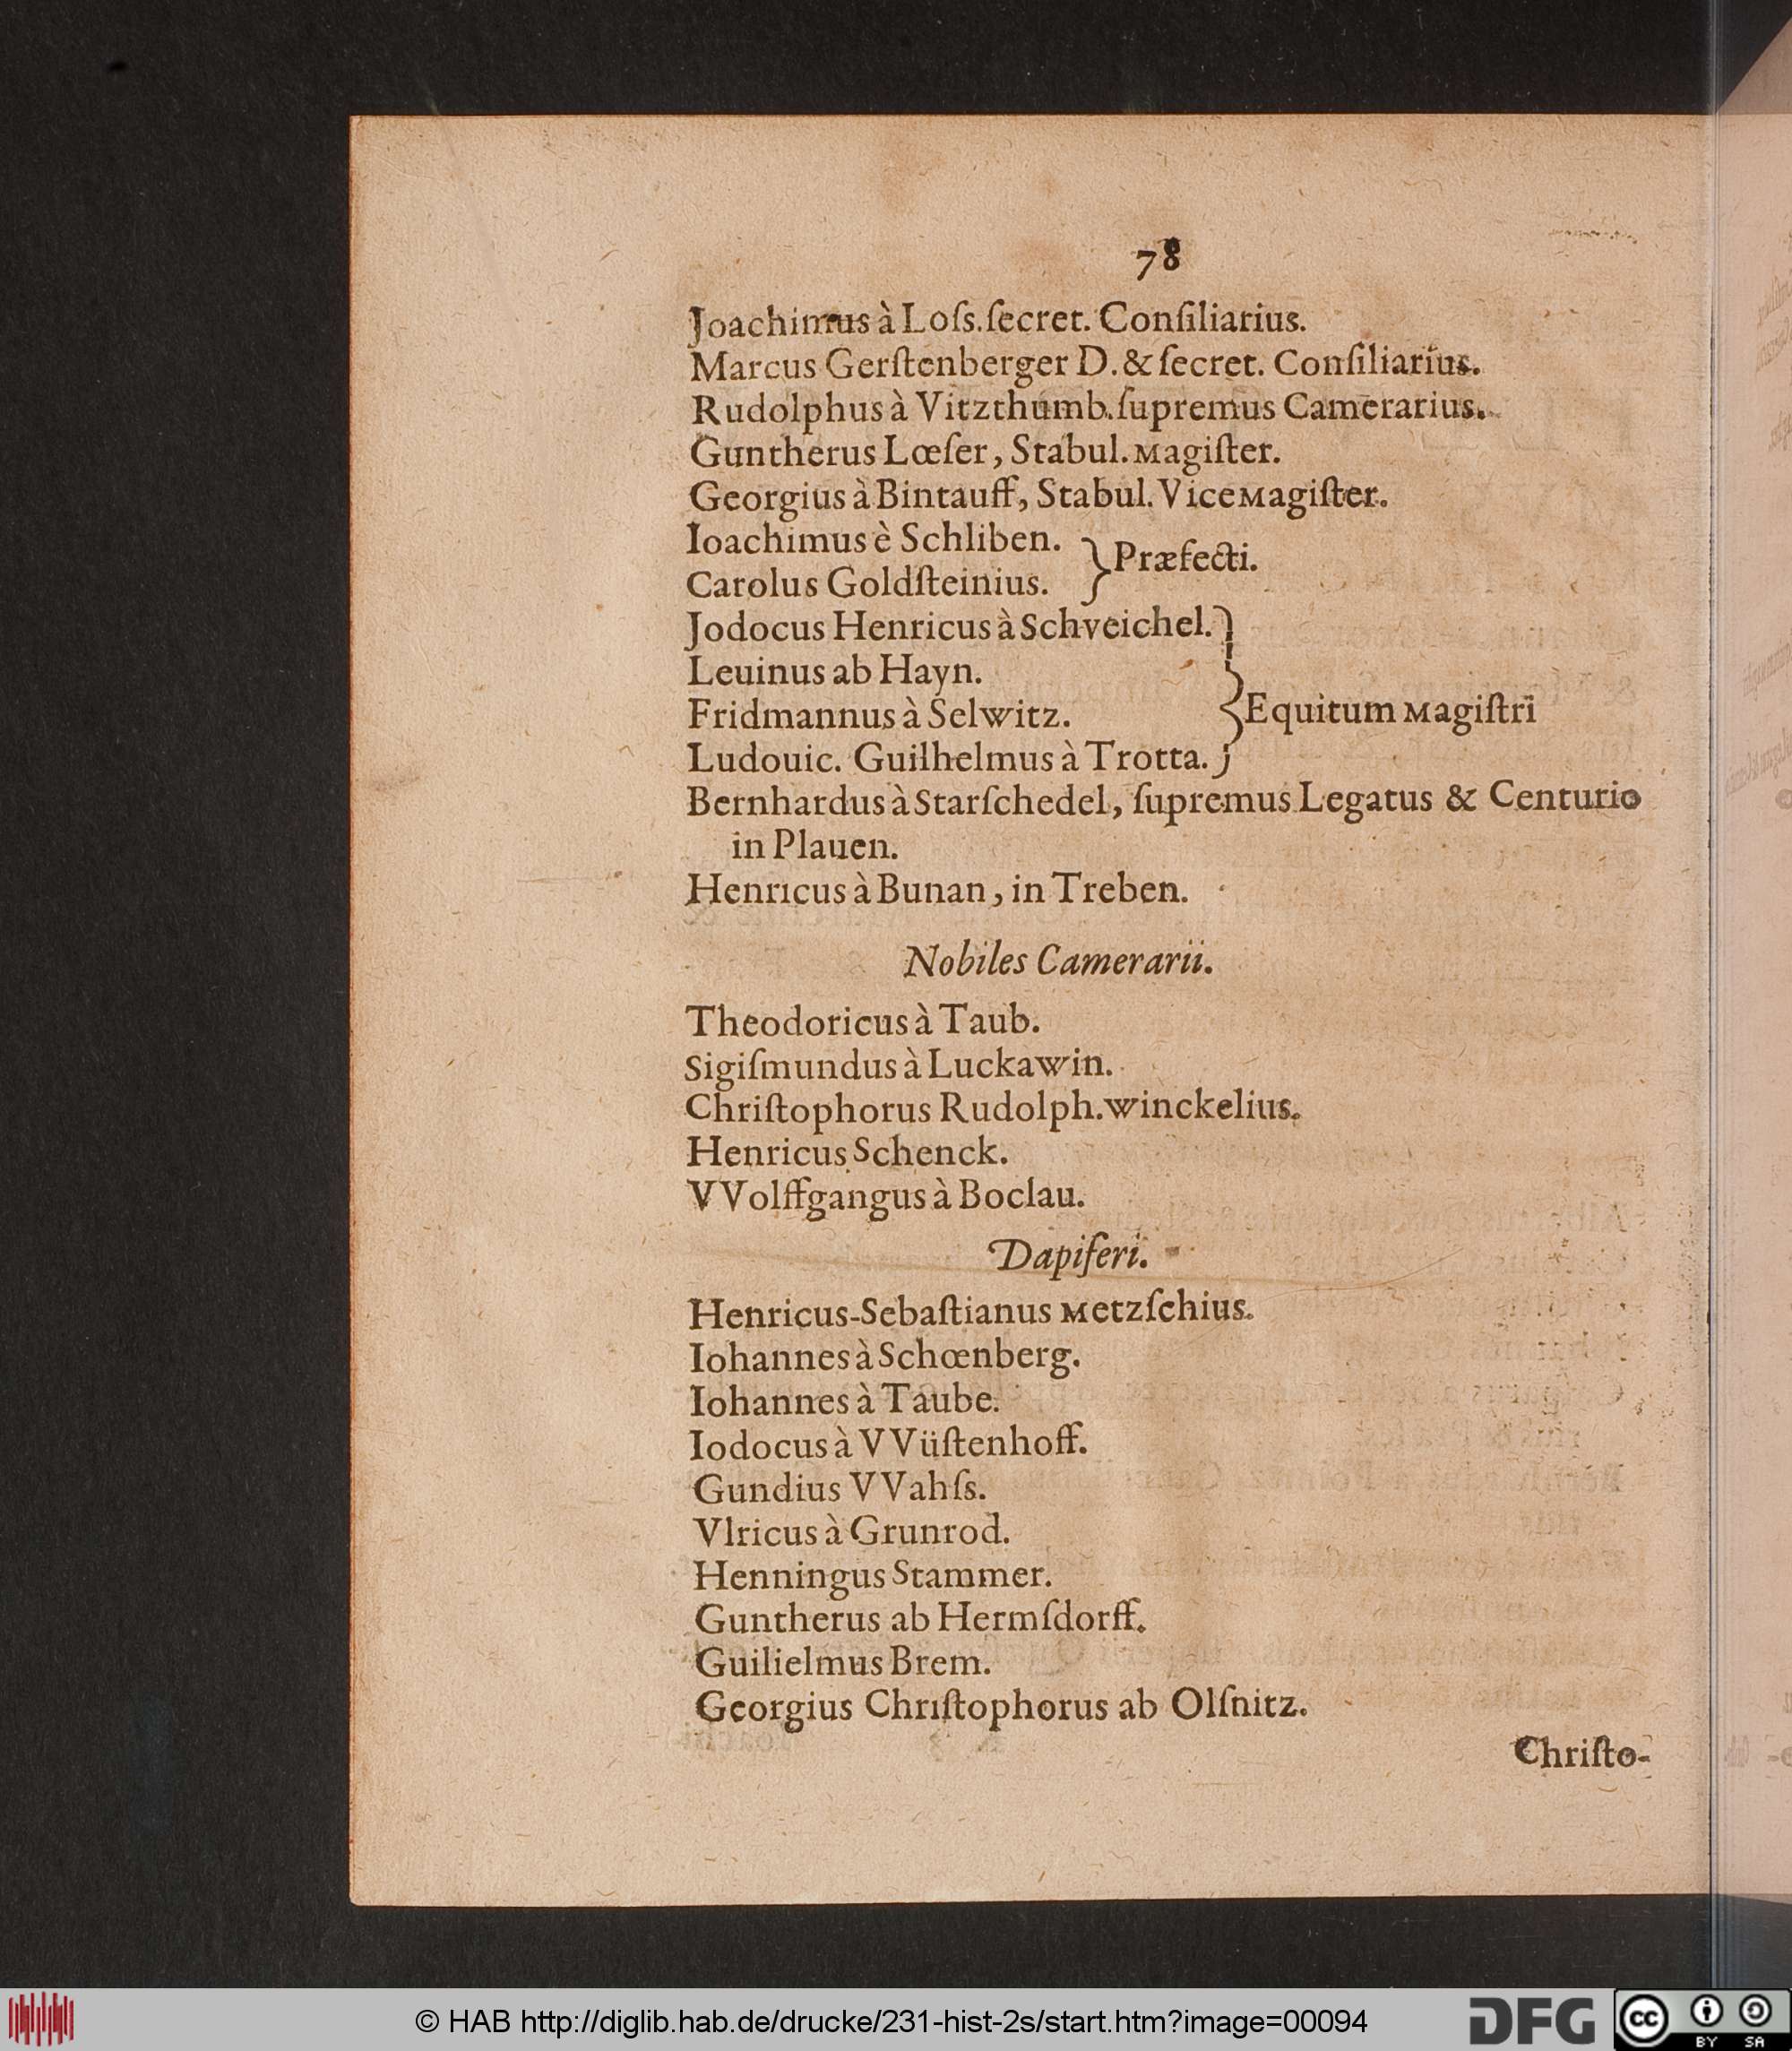 78
Joachimus à Loſs. ſecret. Conſiliarius.
Marcus Gerſtenberger D. & ſecret. Conſiliarius.
Rudolphus à Vitzthumb. ſupremus Camerarius.
Guntherus Lœſer, Stabul. Magiſter.
Georgius à Bintauff, Stabul. ViceMagiſter.
Ioachimus è Schliben.
} Præfecti.
Carolus Goldſteinius.
Jodocus Henricus à Schveichel.
Leuinus ab Hayn.
Fridmannus à Selwitz. } Equitum Magiſtri
Ludouic. Guilhelmus à Trotta.
Bernhardus à Starſchedel, ſupremus Legatus & Centurio
in Plauen.
Henricus à Bunan, in Treben.
Nobiles Camerarii.
Theodoricus à Taub.
Sigiſmundus à Luckawin.
Chriſtophorus Rudolph. Winckelius.
Henricus Schenck.
VVolffgangus à Boclau.
Dapiferi.
Henricus-Sebaſtianus Metzſchius.
Iohannes à Schœnberg.
Iohannes à Taube.
Iodocus à VVüſtenhoff.
Gundius VVahſs.
Vlricus à Grunrod.
Henningus Stammer.
Guntherus ab Hermſdorff.
Guilielmus Brem.
Georgius Chriſtophorus ab Olſnitz.
Chriſto-
© HAB http://diglib.hab.de/drucke/231-hist-2s/start.htm?image=00094
DFG
cc BY SA